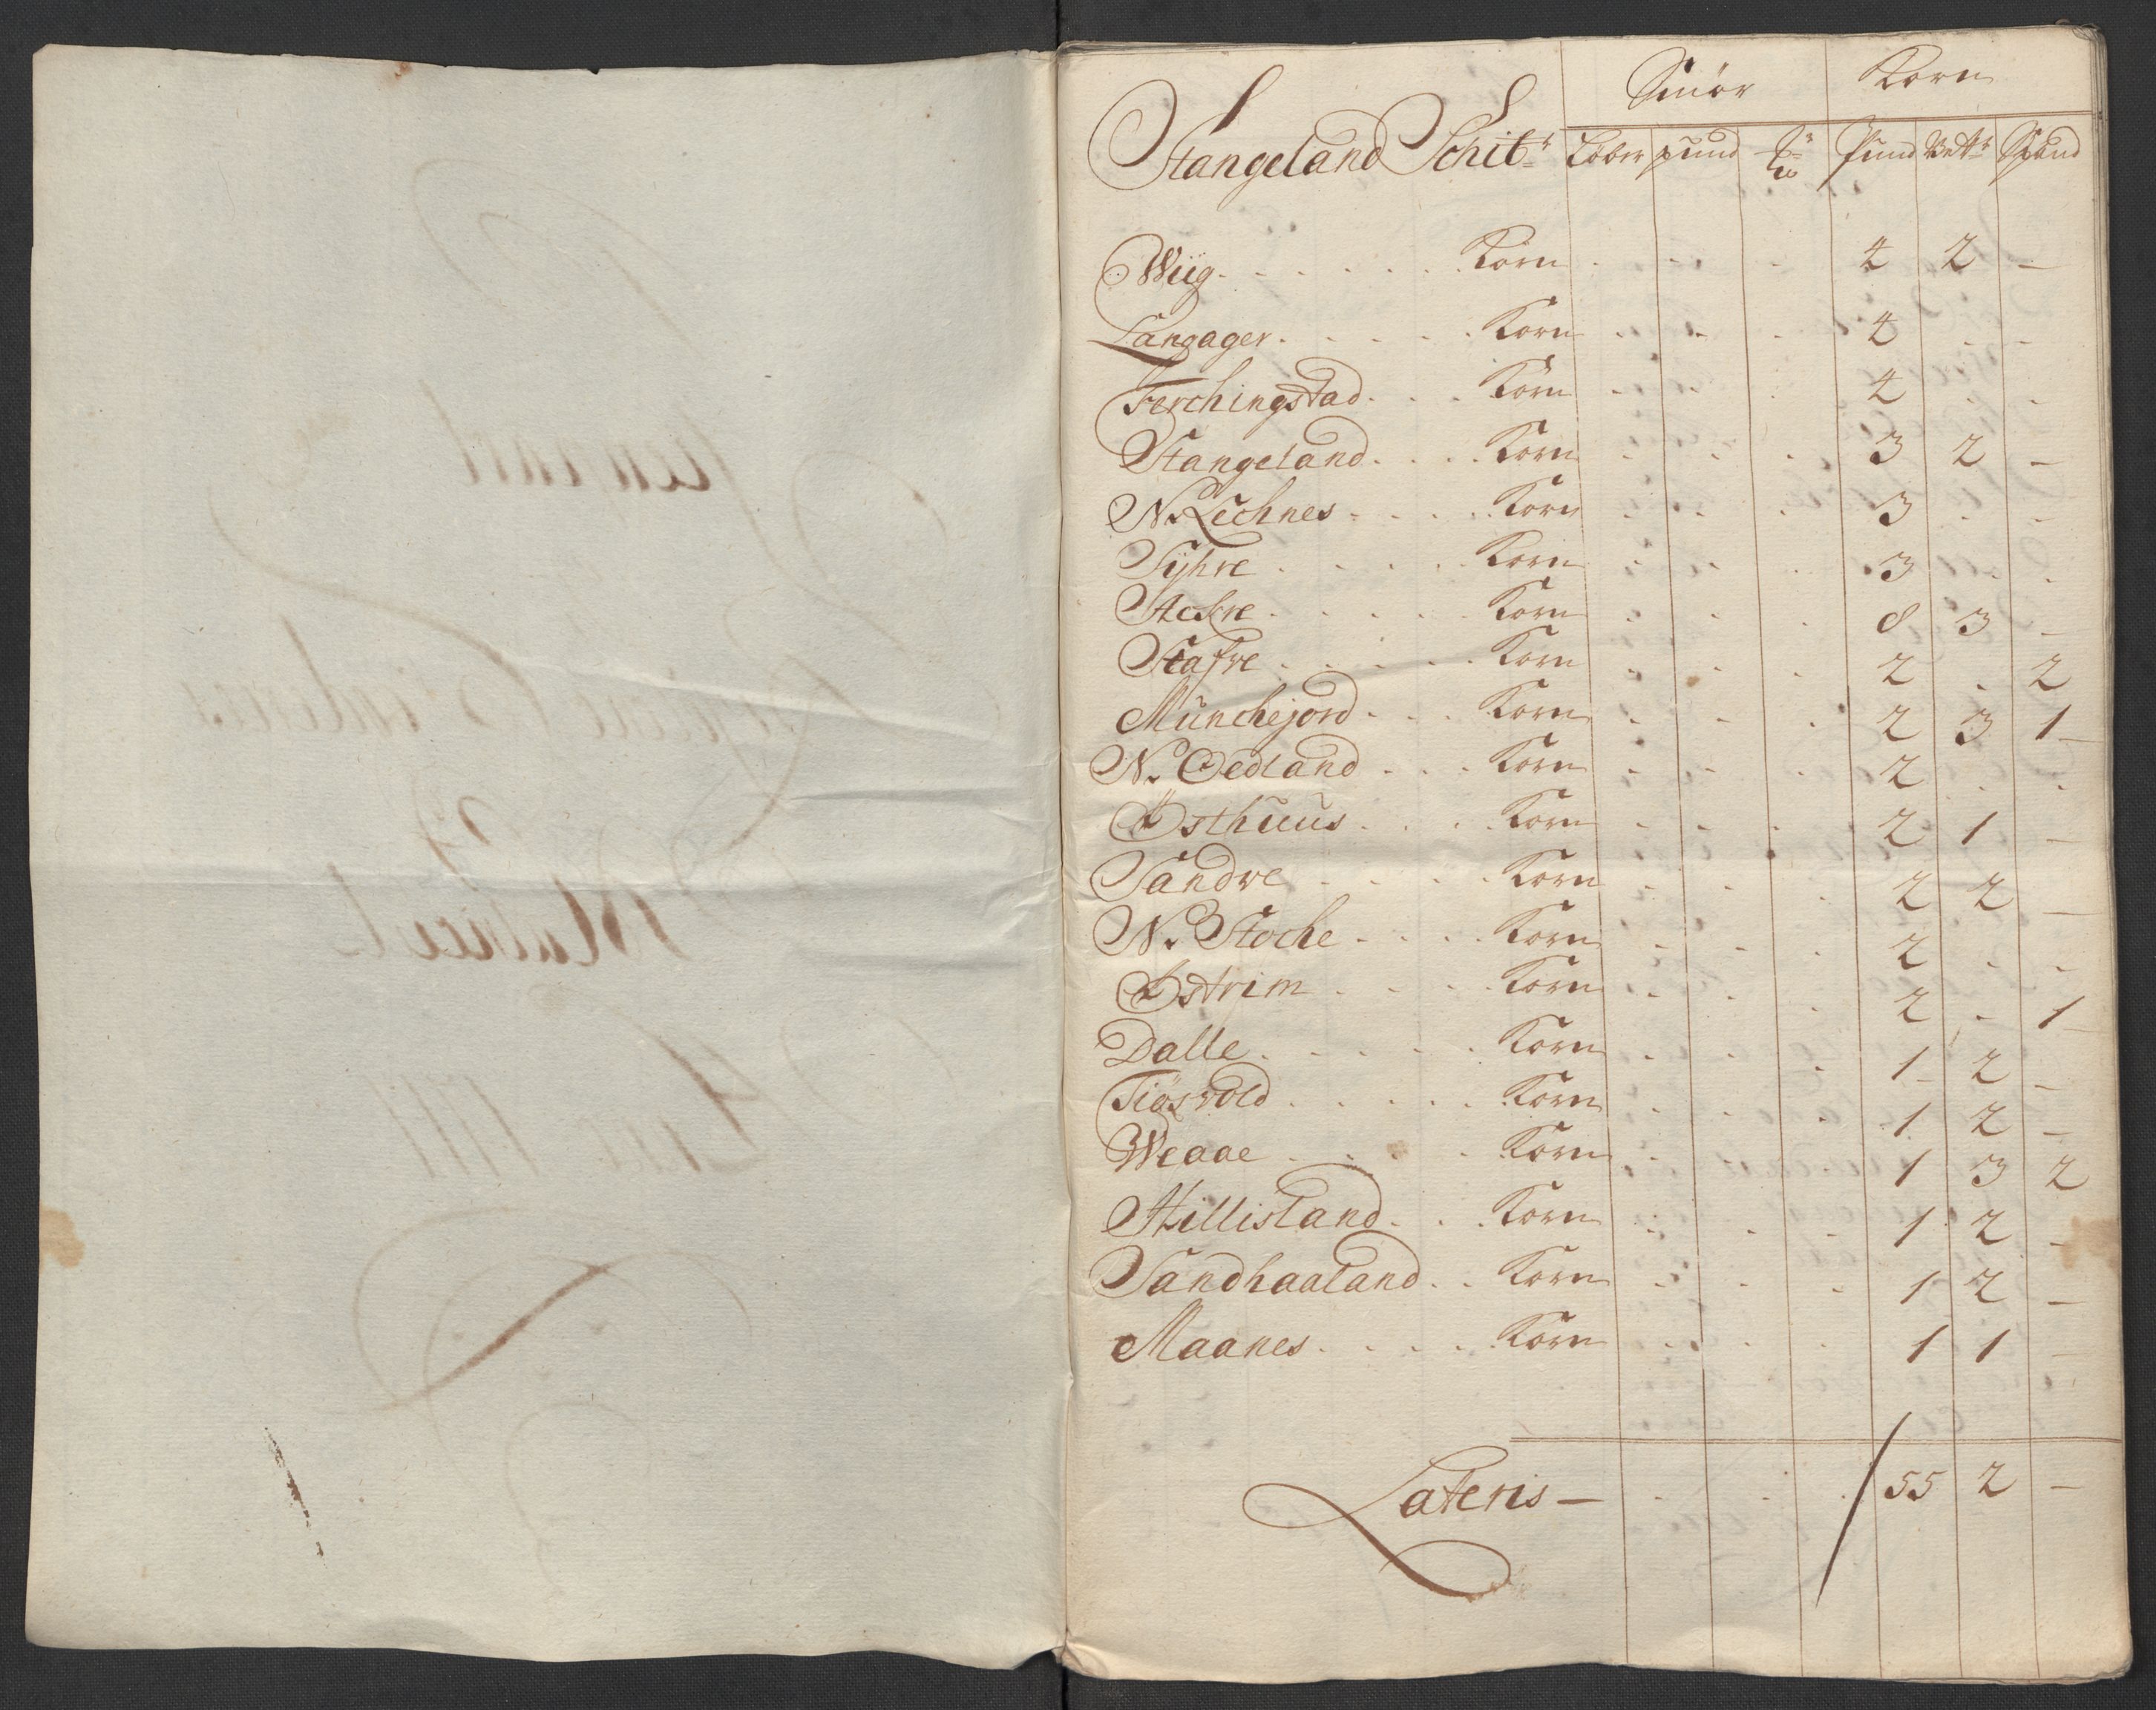 Smör Korn
Stangeland Schibr Löber pund Pund Vettr Spand
Wiig. Korn 4 2 -
Langager. Korn 4
Ferchingstad. Korn 4
Stangeland. Korn 3 2 -
N. Lechnes Korn 3
Syhre Korn 3
Ackre Korn 8 3 -
Stafre Korn 2 . 2
Munchejord Korn 2 3 1
N. Oedland Korn 2
Østhuus Korn 2 1 -
Sandve Korn 2 2 -
N. Stoche Korn 2
Østrim Korn 2 . 1
Dalle Korn 1 2 -
Tiösvold Korn 1 2 -
Weaae Korn 1 3 2
Hillisland Korn 1 2 -
Sandhaaland Korn 1 2 -
Maanes Korn 1 1 -
Lateris — 55 2 -